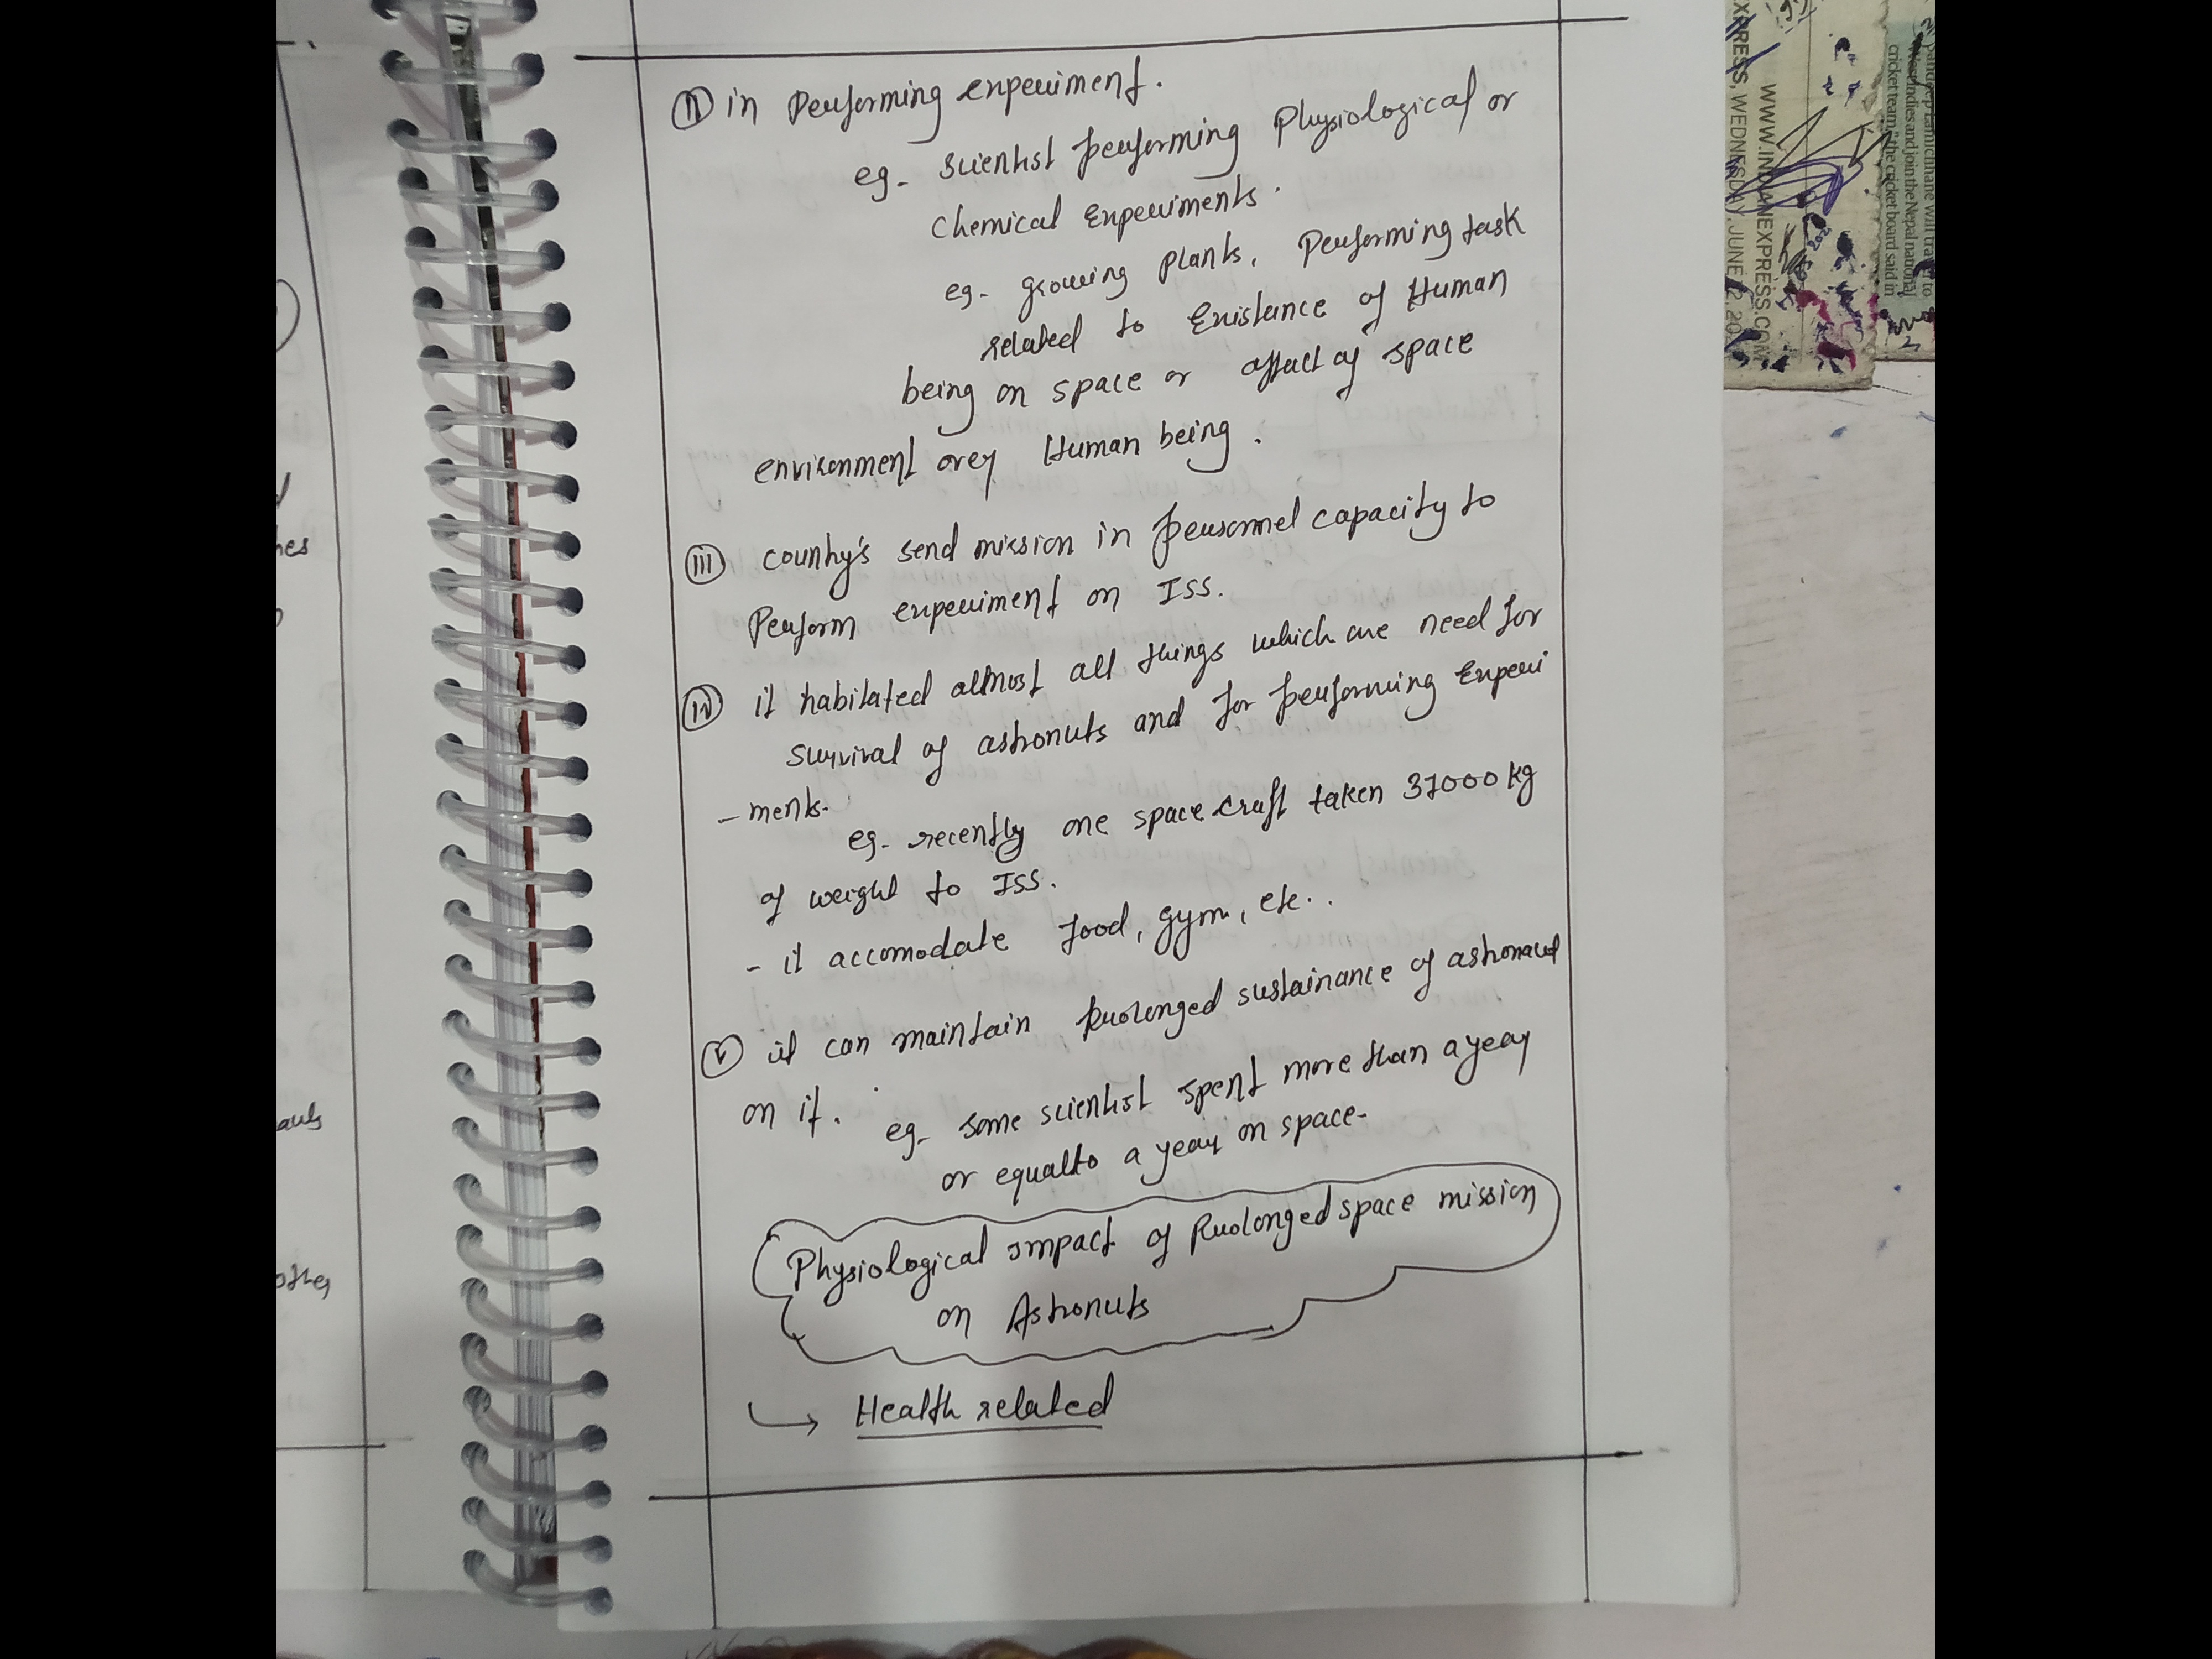 (ii) in Performing experiment.
eg- Scientist performing Physiological or
Chemical Experiments.
eg- growing plants, Performing task
related to Existence of Human
being on space or affect of space
environment over Human being.
(iii) county's send mission in personnel capacity to
Perform experiment on ISS.
(iv) it habitated almost all things which are need for
survival of astronuts and for performing Experi
- ments.
eg- recently one space craft taken 37000 kg
of weight to ISS.
- it accomodate food, gym, etc..
(v) it can maintain prolonged sustainance of astronaut
on it.
eg- some scientist spent more than a year
or equal to a year on space-
Physiological impact of Prolonged space mission
on Astronuts
↳ Health related
hes
auts
other
XPRESS, WEDNESDAY, JUNE 12, 20
WWW.INDIANEXPRESS.COM
West Indies and join the Nepal national
cricket team," the cricket board said in